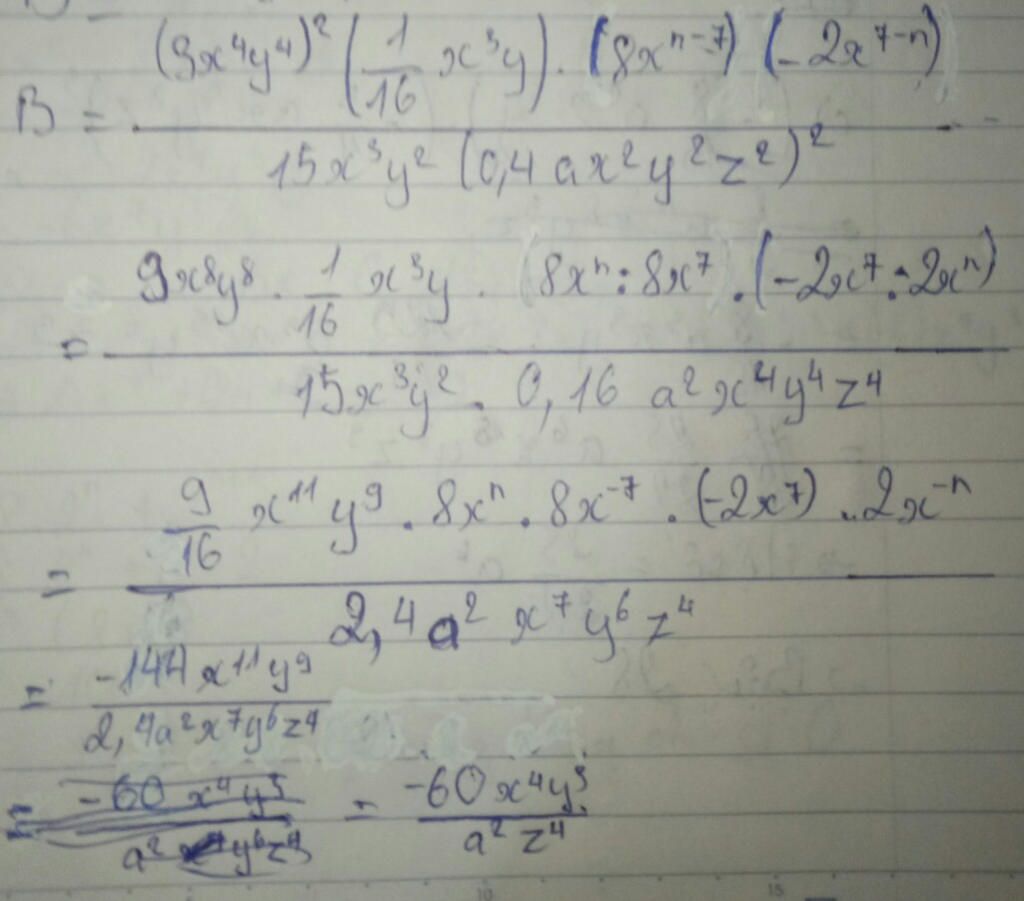 B = (3x⁴y⁴)² (1/16 x³y) · (8xⁿ⁻⁷) (-2x⁷⁻ⁿ) / 15x³y² (0,4 ax²y²z²)²
= 9x⁸y⁸ · 1/16 x³y · (8xⁿ : 8x⁷) · (-2x⁷ : 2xⁿ) / 15x³y² · 0,16 a²x⁴y⁴z⁴
= 9/16 x¹¹y⁹ · 8xⁿ · 8x⁻⁷ · (-2x⁷) · 2x⁻ⁿ / 2,4a² x⁷y⁶z⁴
= -144x¹¹y⁹ / 2,4a²x⁷y⁶z⁴
= -60x⁴y³ / a²z⁴